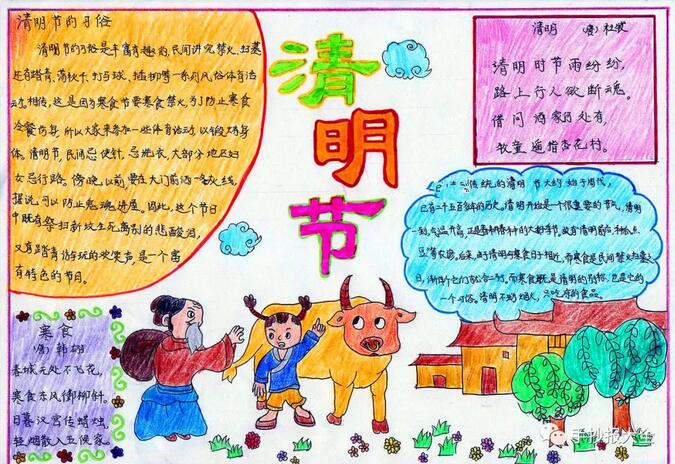 清明节的习俗
清明节的习俗是丰富有趣的,民间讲究禁火、扫墓
还有踏青、荡秋千、打马球、插柳等一系列风俗体育活
动。相传,这是因为寒食节要寒食禁火,为了防止寒食
冷餐伤身,所以大家来参加一些体育活动,以锻炼身
体。清明节,民间忌使针,忌洗衣,大部分地区妇
女忌行路。傍晚以前,要在大门前洒一条灰线,
据说可以防止鬼魂进屋。因此,这个节日
中既有祭扫新坟生死离别的悲酸泪,
又有踏青游玩的欢笑声,是一个富
有特色的节日。
清明节
清明 (唐)杜牧
清明时节雨纷纷,
路上行人欲断魂。
借问酒家何处有,
牧童遥指杏花村。
传统的清明节大约始于周代,
已有二千五百多年的历史。清明开始是一个很重要的节气,清明
一到,气温升高,正是春耕春种的大好时节,故有清明前后,种瓜点
豆
农谚。后来,由于清明与寒食日子相近,而寒食是民间禁火扫墓之
日,渐渐
一个习俗。清明不动烟火,只吃凉的食品。
寒食
(唐)韩翃
春城无处不飞花,
寒食东风御柳斜。
日暮汉宫传蜡烛,
轻烟散入五侯家。
手抄报大全